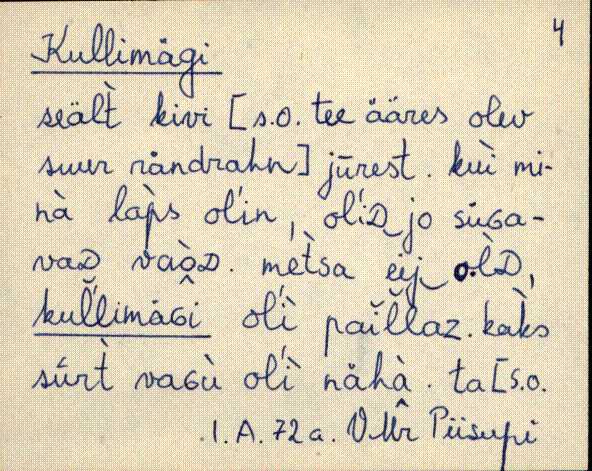 4
Kullimägi
seäl̀t kivi [s.o. tee ääres olev
suur rändrahn] jūrest. kuì mi-
nà làps oĺin, oĺiᴅ jo süɢa-
vaᴅ vaòᴅ. mètsa eij oĺ̀ᴅ,
kul̆limäɢî oĺì paĭl̆laz. kàks
sū́rt̀ vaɢù oĺì nähà. ta [s.o.
I. A. 72 a. VMr Piisupi